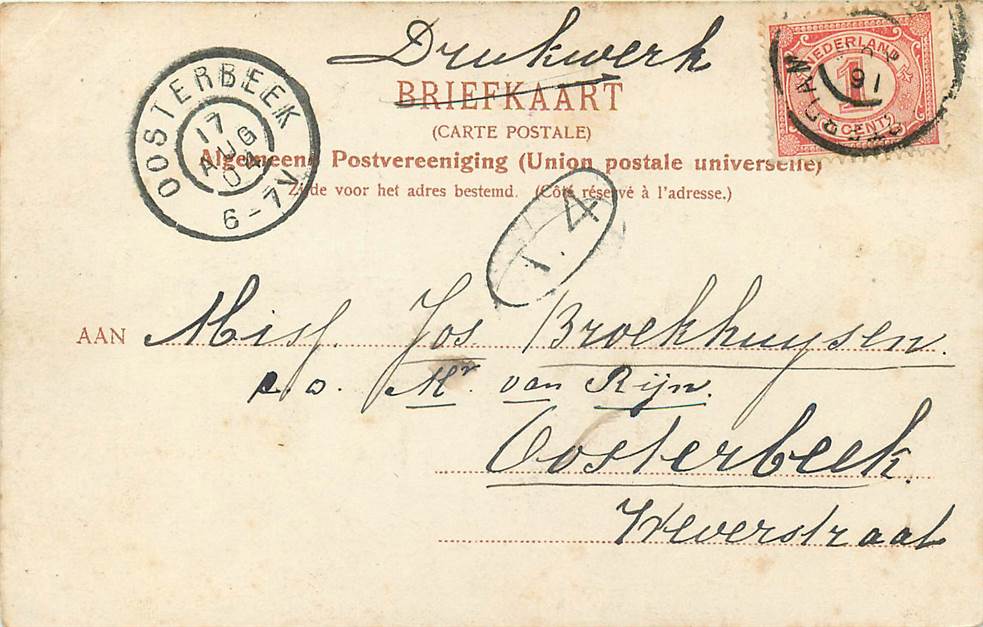 Drukwerk
BRIEFKAART
(CARTE POSTALE)
Algemeene Postvereeniging (Union postale universelle)
Zijde voor het adres bestemd. (Côté réservé à l'adresse.)
OOSTERBEEK
17
AUG
04
6-7V
NEDERLAND
1
CENT
4
AAN Miss. Jos Broekhuysen.
c.o. Mr. van Rijn.
Oosterbeek.
Weverstraat